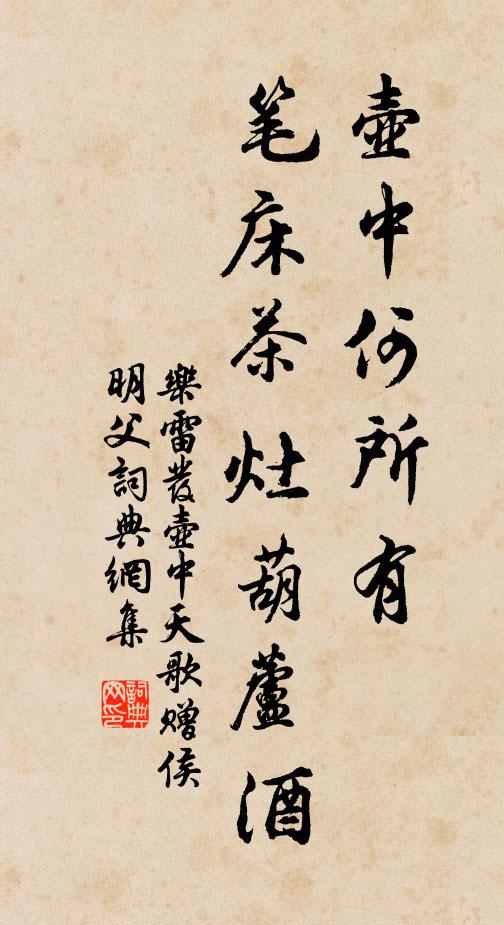 壺中何所有
笔床茶灶葫蘆酒
樂雷發壺中天歌贈侯
明父詞典網集
詞典
网印